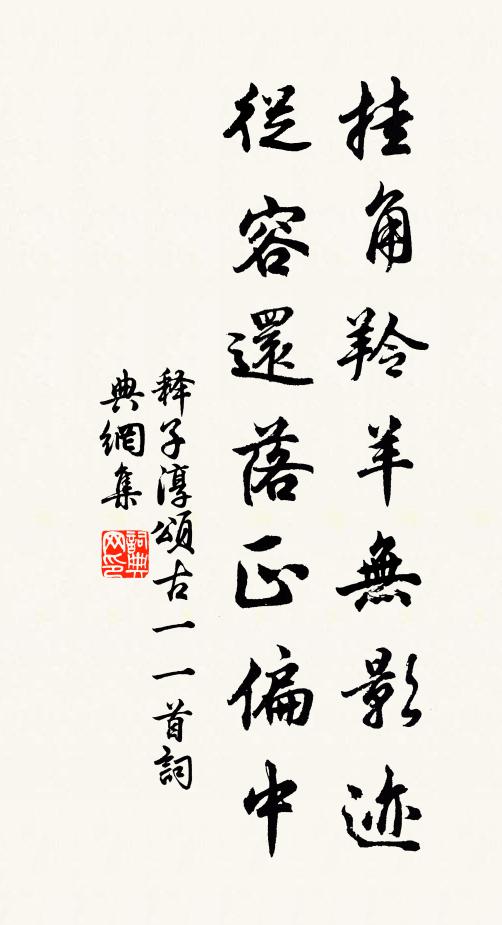 挂角羚羊無影迹
從容還落正偏中
释子淳頌古一一首詞
典網集
詞典网印